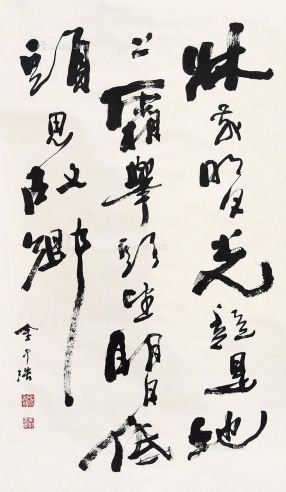 牀前明月光疑是地
上霜舉頭望明月低
頭思故鄉